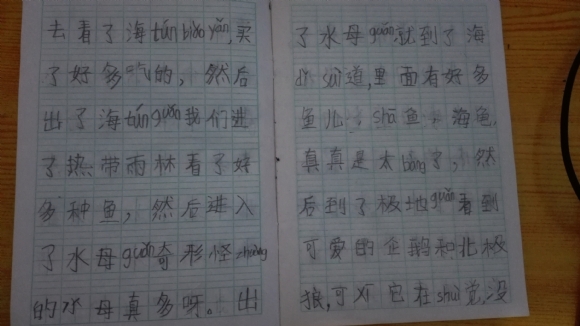 去看了海tún biǎo yǎn,买
了好多吃的，然后
出了海tún guǎn我们进
了热带雨林看了好
多种鱼，然后进入
了水母guǎn奇形怪zhuàng
的水母真多呀。出
了水母guǎn就到了海
dǐ suì道,里面有好多
鱼儿、shā鱼、海龟,
真真是太bàng了，然
后到了极地guǎn看到
可爱的企鹅和北极
狼,可xī它在shuì觉,没